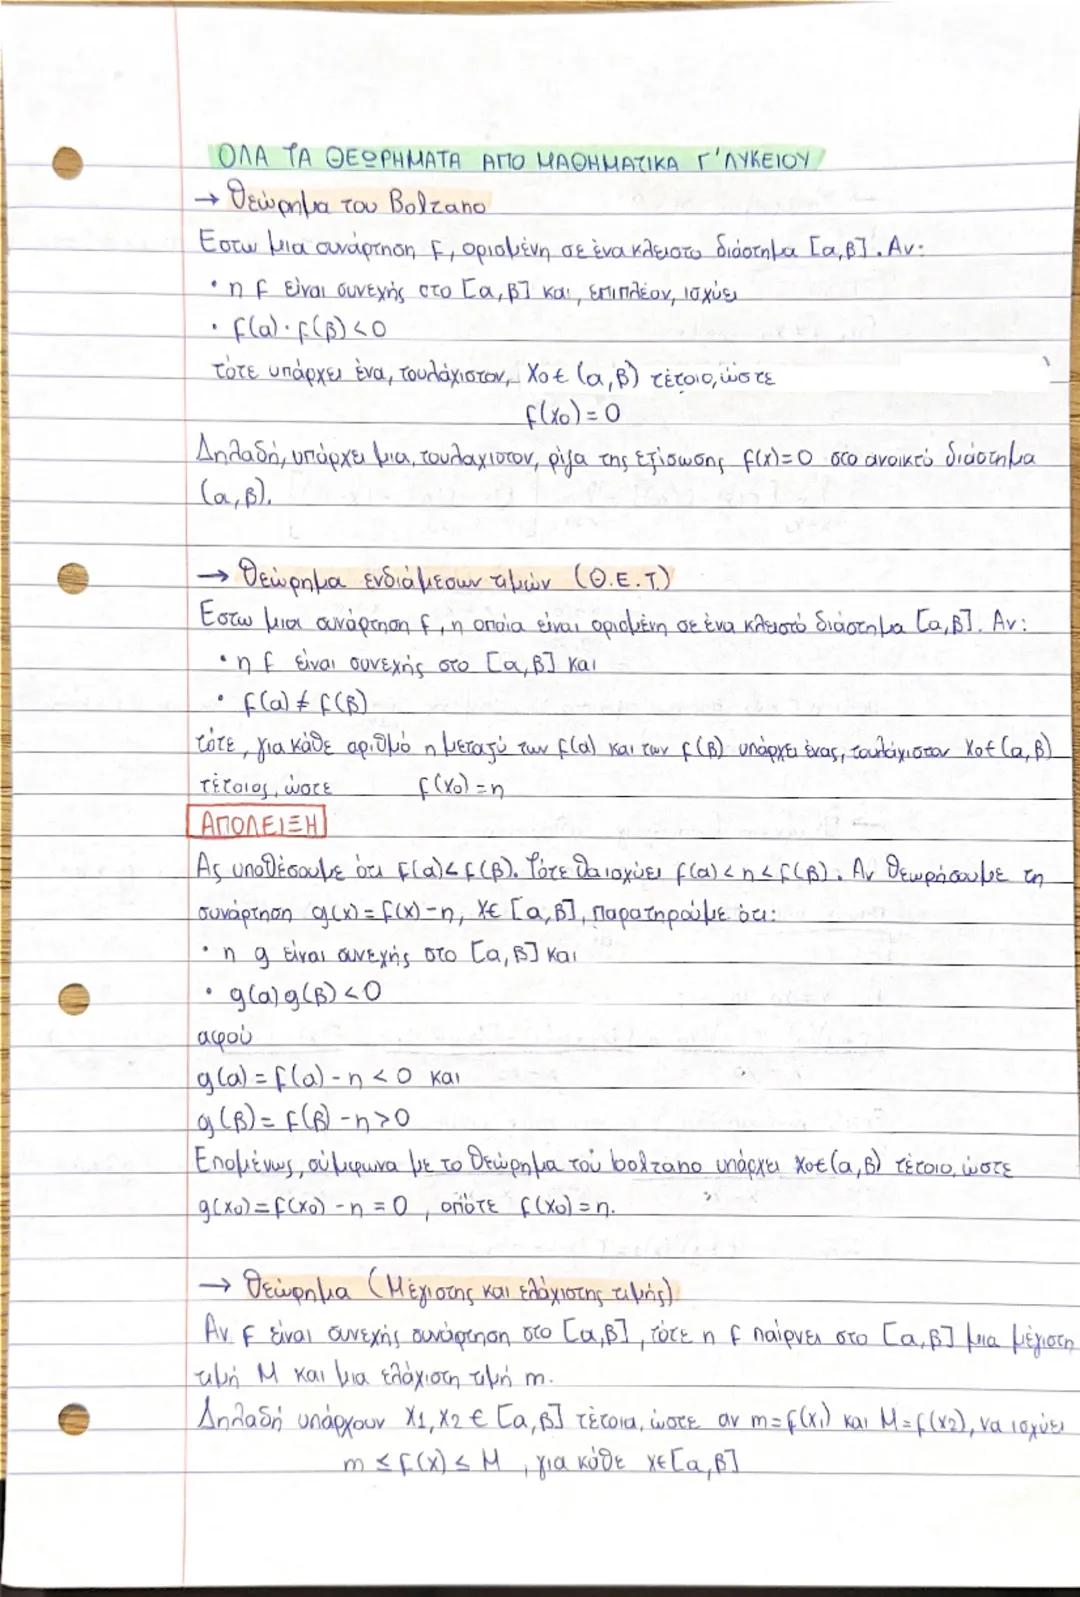 ΟΛΑ ΤΑ ΘΕΩΡΗΜΑΤΑ ΑΠΟ ΜΑΘΗΜΑΤΙΚΑ Γ' ΛΥΚΕΙΟΥ
→ Θεώρημα του Bolzano
Εστω μια συνάρτηση f, ορισμένη σε ένα κλειστο διάστημα [α,β]. Αν:
• η f είναι συνεχής στο [α,β] και, επιπλέον, ισχύει
• f(α)·f(β)<0
τότε υπάρχει ένα, τουλάχιστον, x0 ∈ (α,β) τέτοιο, ώστε
f(x0)=0
Δηλαδή, υπάρχει μια, τουλαχιστον, ρίζα της εξίσωσης f(x)=0 στο ανοικτό διάστημα
(α,β).
→ Θεώρημα ενδιάμεσων τιμών (Θ.Ε.Τ.)
Εστω μια συνάρτηση f, η οποία είναι ορισμένη σε ένα κλειστό διάστημα [α,β]. Αν:
• η f είναι συνεχής στο [α,β] και
• f(α) ≠ f(β)
τότε, για κάθε αριθμό η μεταξύ των f(α) και των f(β) υπάρχει ένας, τουλάχιστον x0 ∈ (α,β)
τέτοιος, ώστε f(x0)=η
ΑΠΟΔΕΙΞΗ
Ας υποθέσουμε ότι f(α)<f(β). Τότε θα ισχύει f(α)<η<f(β). Αν θεωρήσουμε τη
συνάρτηση g(x)=f(x)-η, x∈[α,β], παρατηρούμε ότι:
• η g είναι συνεχής στο [α,β] και
• g(α)g(β)<0
αφού
g(α)=f(α)-η<0 και
g(β)=f(β)-η>0
Επομένως, σύμφωνα με το Θεώρημα τού bolzano υπάρχει x0∈(α,β) τέτοιο, ώστε
g(x0)=f(x0)-η=0, οπότε f(x0)=η.
→ Θεώρημα (Μέγιστης και ελάχιστης τιμής)
Αν f είναι συνεχής συνάρτηση στο [α,β], τότε η f παίρνει στο [α,β] μια μέγιστη
τιμή Μ και μια ελάχιστη τιμή m.
Δηλαδή υπάρχουν x1,x2 ∈ [α,β] τέτοια, ώστε αν m=f(x1) και M=f(x2), να ισχύει
m ≤ f(x) ≤ M, για κάθε x∈[α,β]